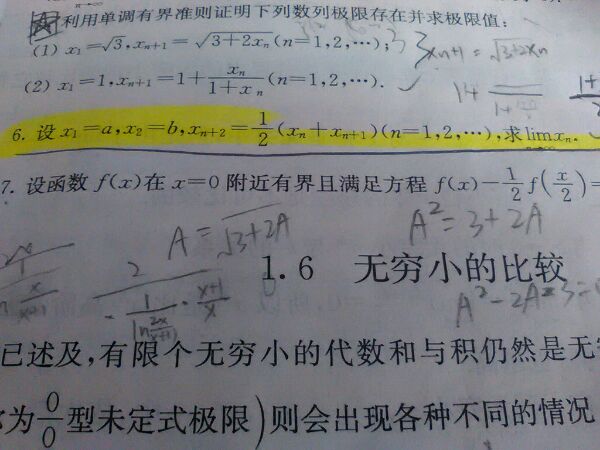 利用单调有界准则证明下列数列极限存在并求极限值:
(1) x₁=√3, xₙ₊₁=√(3+2xₙ) (n=1,2,…); xₙ₊₁=√(3+2xₙ)
(2) x₁=1, xₙ₊₁=1+xₙ/(1+xₙ) (n=1,2,…).
6. 设 x₁=a, x₂=b, xₙ₊₂=1/2(xₙ+xₙ₊₁)(n=1,2,…), 求 lim xₙ.
n→∞
7. 设函数 f(x) 在 x=0 附近有界且满足方程 f(x)-1/2 f(x/2)=
A=√(3+2A)
A²=3+2A
1.6 无穷小的比较
A²-2A-3=
已述及,有限个无穷小的代数和与积仍然是无
为 0/0 型未定式极限)则会出现各种不同的情况